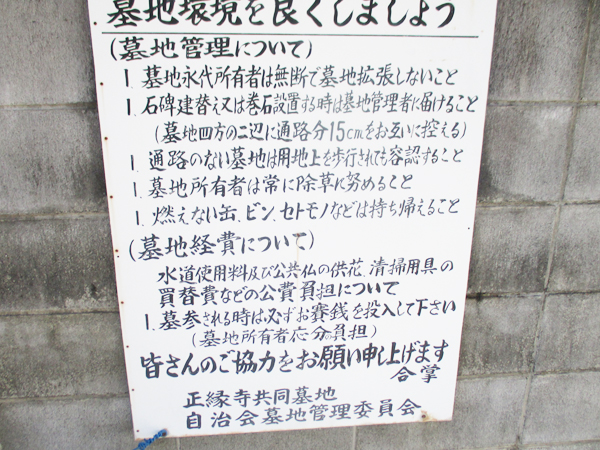 墓地環境を良くしましょう
(墓地管理について)
1 墓地永代所有者は無断で墓地拡張しないこと
1.石碑建替え又は巻石設置する時は墓地管理者に届けること
(墓地四方の二辺に通路分15cmをお互いに控える)
1 通路のない墓地は用地上を歩行されても容認すること
1 墓地所有者は常に除草に努めること
1.燃えない缶、ビン、セトモノなどは持ち帰えること
(墓地経費について)
水道使用料及び公共仏の供花、清掃用具の
買替費などの公費負担について
1.墓参される時は必ずお賽銭を投入して下さい
(墓地所有者応分負担)
皆さんのご協力をお願い申し上げます
合掌
正縁寺共同墓地
自治会墓地管理委員会